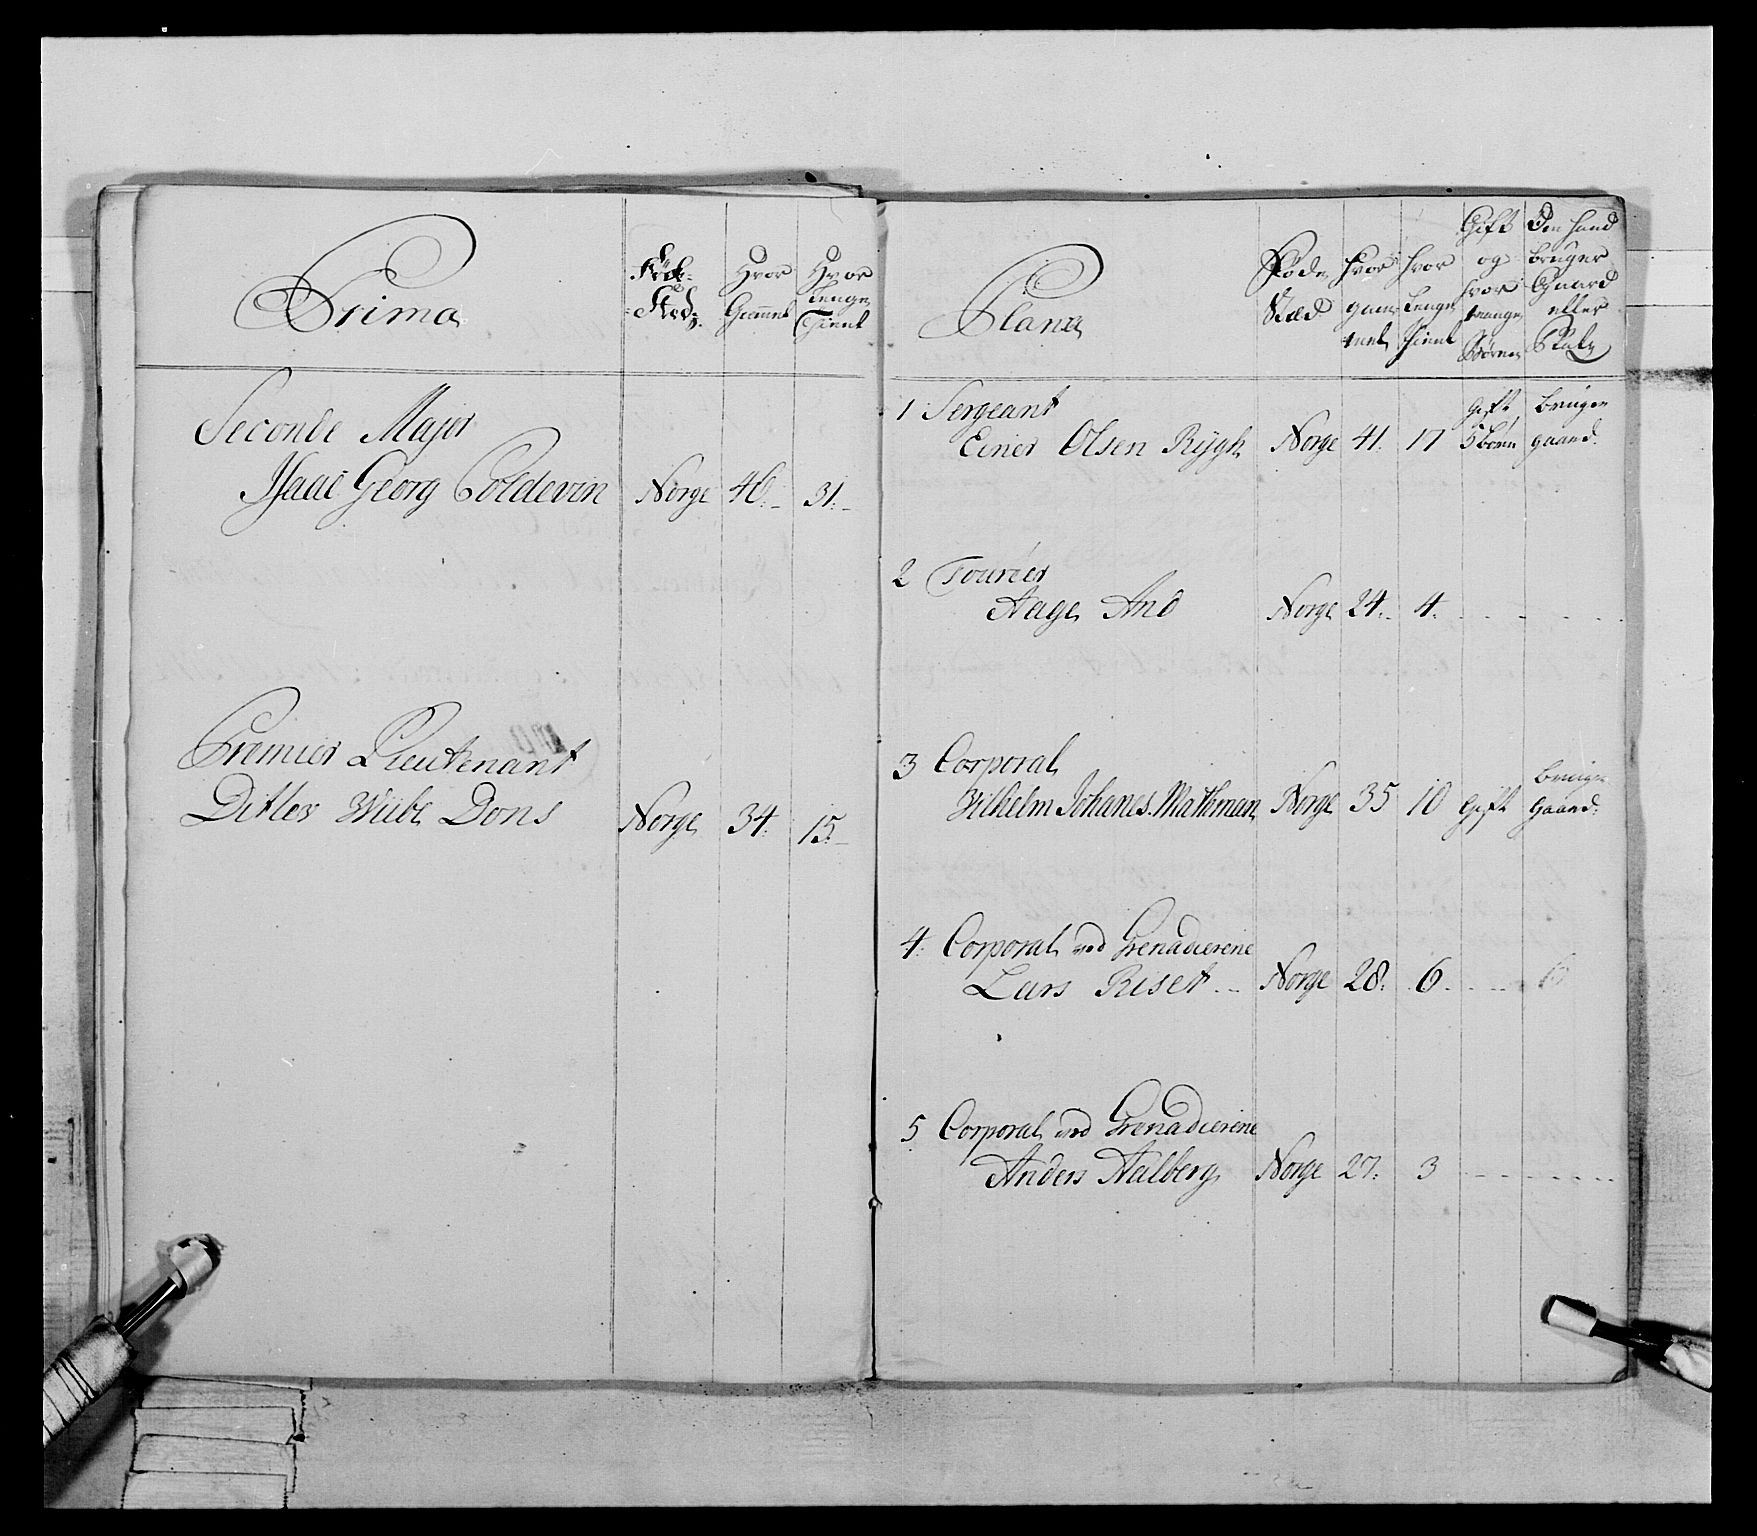 Prima
Føde-
Sted
Hvor
Gammel
Hvor
Lenge
Tient
Seconde Major
Isaac Georg Coldevin Norge 46. 31.
Premier Lieutenant
Ditlev Wiibe Dons Norge 34. 15.
Plana
Føde
Stæd
Hvor
gam
mel
Hvor
Lenge
Tient
Gift
og
hvor
mange
Børn
Om hand
bruger
Gaard
eller
Plads
1 Sergeant Gift bruger
Einer Olsen Rygh Norge 41. 17 5 børn gaard.
2 Fourier
Aage And Norge 24. 4.
3 Corporal bruger
Vilhelm Johanes Matheman Norge 35 10 Gift Gaard.
4. Corporal ved Grenadierene
Lars Riset Norge 28. 6.
5 Corporal ved Grenadierene
Anders Aalberg Norge 27. 3